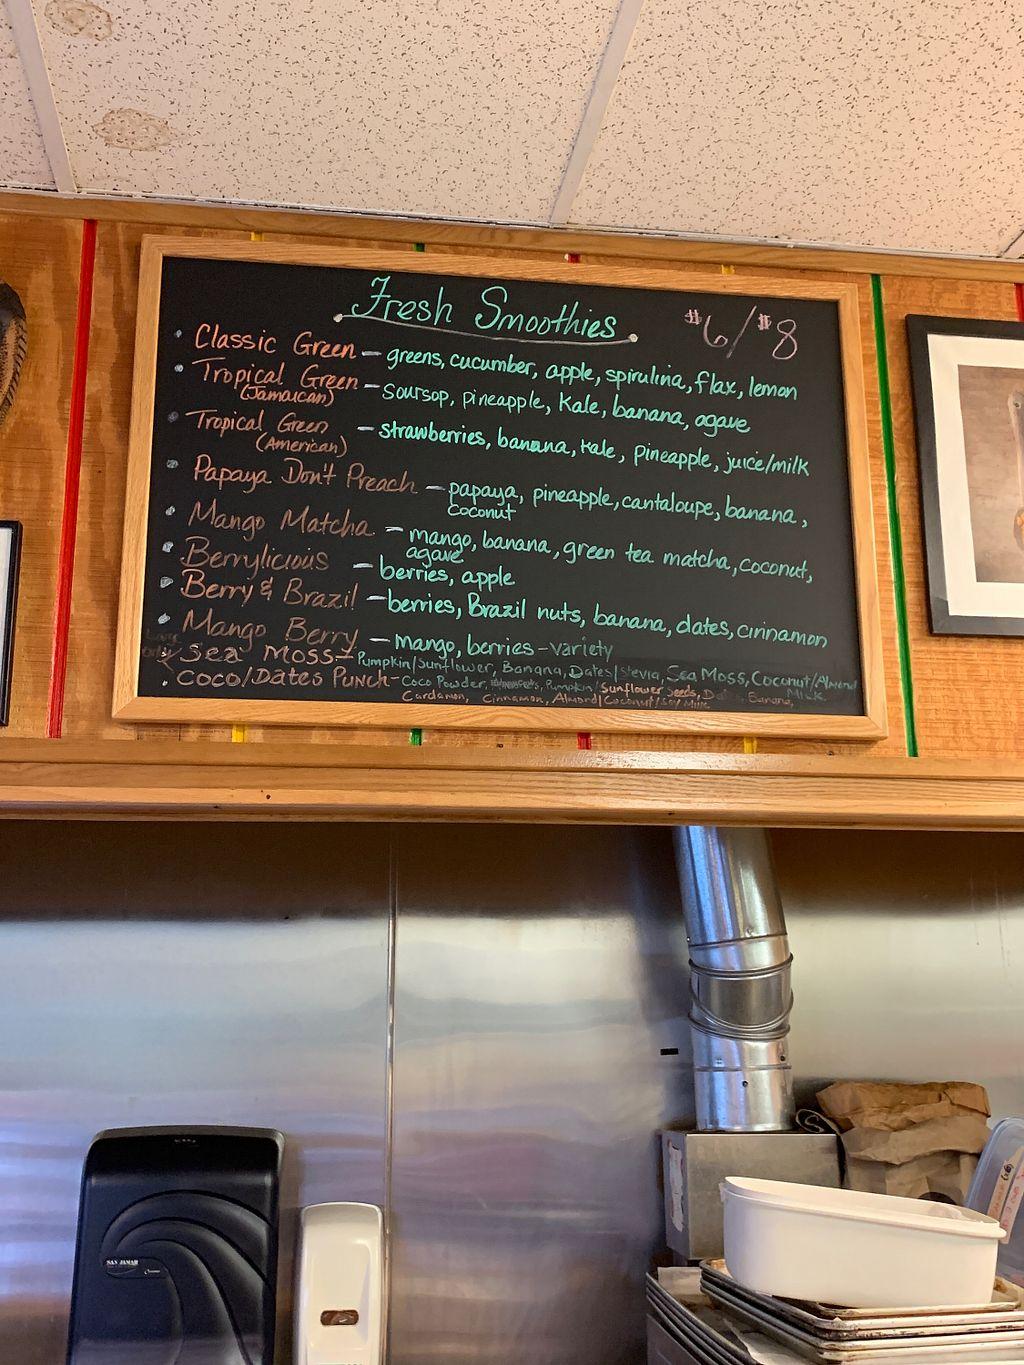 Fresh Smoothies
$6/$8
Classic Green — greens, cucumber, apple, spirulina, flax, lemon
Tropical Green — Soursop, pineapple, Kale, banana, agave
(Jamaican)
Tropical Green — strawberries, banana, kale, pineapple, juice/milk
(American)
Papaya Don't Preach — papaya, pineapple, cantaloupe, banana,
coconut
Mango Matcha — mango, banana, green tea matcha, coconut,
agave
Berrylicious — berries, apple
Berry & Brazil — berries, Brazil nuts, banana, dates, cinnamon
Mango Berry — mango, berries - variety
Large
only
Sea Moss — Pumpkin/Sunflower, Banana, Dates/stevia, Sea Moss, Coconut/Almond
Milk
Coco/Dates Punch - Coco Powder, Pumpkin/Sunflower seeds, Banana,
Cardamon, Cinnamon, Almond/Coconut/Soy Milk
SAN JAMAR